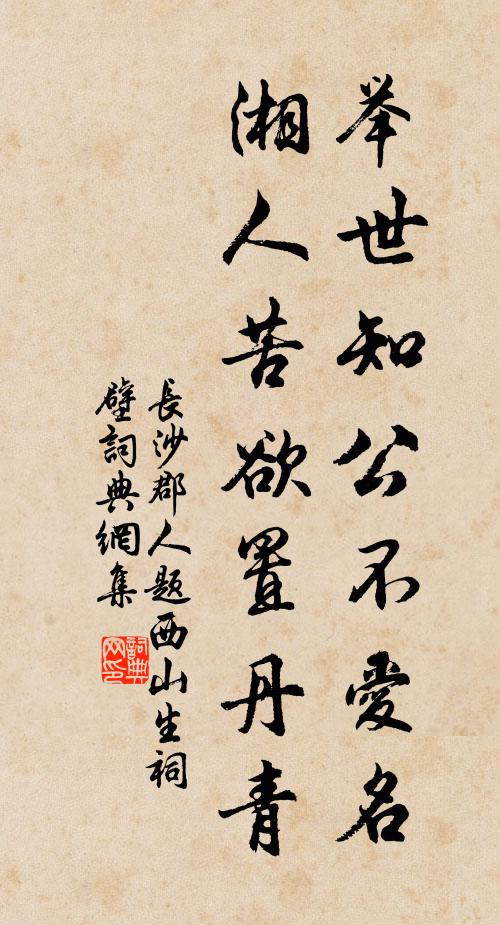 举世知公不爱名
湘人苦欲置丹青
長沙郡人题西山生祠
壁詞典網集
詞典网印